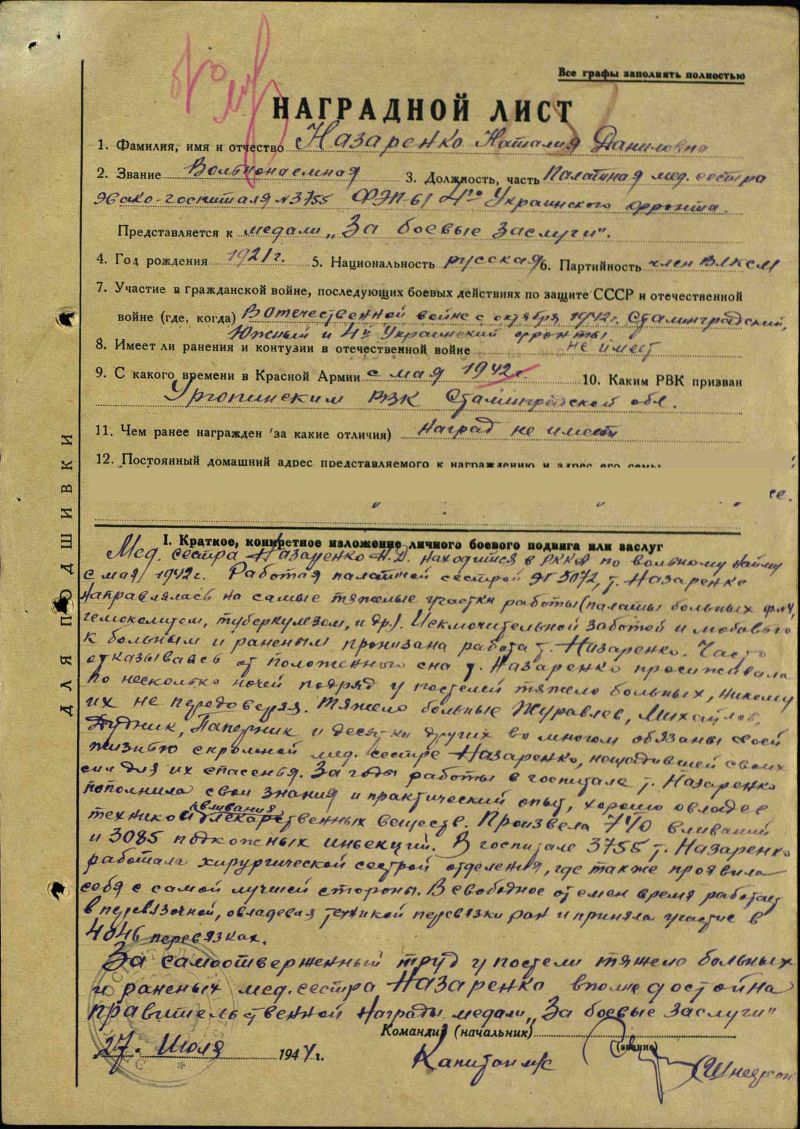 Все графы заполнять полностью
НАГРАДНОЙ ЛИСТ
1. Фамилия, имя и отчество Назаренко Наталия Даниловна
2. Звание Вольнонаемная 3. Должность, часть Палатная мед. сестра
эвако-госпиталя №3755 ФЭП-61 4го Украинского фронта.
Представляется к медали „За боевые заслуги".
4. Год рождения 1921г. 5. Национальность русская 6. Партийность член ВЛКСМ
7. Участие в гражданской войне, последующих боевых действиях по защите СССР и отечественной
войне (где, когда) В отечественной войне с октября 1942г. Сталинградский,
Южный и 4й Украинский фронты
8. Имеет ли ранения и контузии в отечественной войне не имеет
9. С какого времени в Красной Армии с мая 1942г. 10. Каким РВК призван
Урюпинским РВК Сталинградской обл.
11. Чем ранее награжден (за какие отличия) наград не имеет
12. Постоянный домашний адрес представляемого к награждению и адрес его семьи
I. Краткое, конкретное изложение личного боевого подвига или заслуг
Мед. сестра Назаренко Н.Д. находится в РККА по вольному найму
с мая 1942г. Работая палатной сестрой ЭГ 3072, т. Назаренко
направлялась на самые тяжелые участки работы (палаты больных
гемоколитом, туберкулезом, и др.). Исключительной заботой и любовью
к больным и раненым пронизана работа т. Назаренко. Часто
отказываясь от положенного сна т. Назаренко просиживала
по несколько ночей подряд у постелей тяжело больных, никому
их не передоверяя. Тяжело больные Журавлев, Михайлов,
Дудник, Паперник и десятки других во многом обязаны своей
жизнью скромной мед. сестре Назаренко, нещадившей своих
сил для их спасенья. За годы работы в госпитале т. Назаренко
пополнила свои знания и практический опыт, хорошо овладев
техникой вливания лекарственных веществ. Произвела 740 вливаний
и 3085 подкожных инъекций. В госпитале 3755 т. Назаренко
работала хирургической сестрой отделения, где также проявила
себя с самой лучшей стороны. В свободное от смен время работает
в перевязочной, овладевая техникой перевязки ран и приняла участие в
4046 перевязках.
За самоотверженный труд у постели тяжело больных
и раненых мед. сестра Назаренко вполне достойна
правительственной Награды медали „За боевые заслуги"
Командир (начальник)
27. Июля 1944г. Капитан м/с (звание)
ДЛЯ ПОДШИВКИ